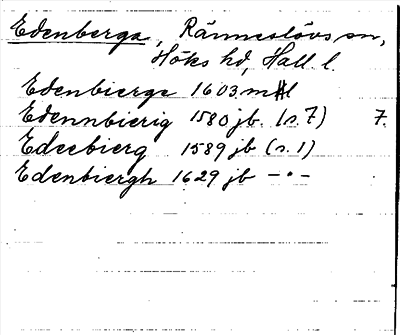 Edenberga, Ränneslövs sn,
Höks hd, Hall. l.
Edenbierge 1603 mtl
Edennbierig 1580 jb. (s. 7) 7.
Edeebierg 1589 jb (s. 1)
Edenbiergh 1629 jb – " –